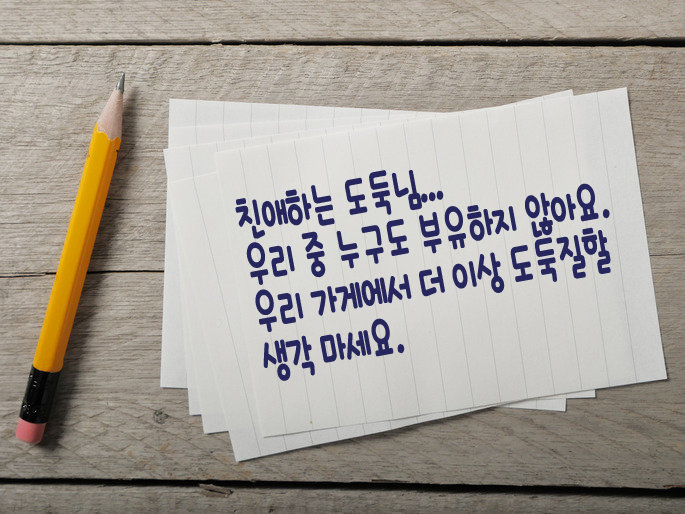 친애하는 도둑님...
우리 중 누구도 부유하지 않아요.
우리 가게에서 더 이상 도둑질할
생각 마세요.